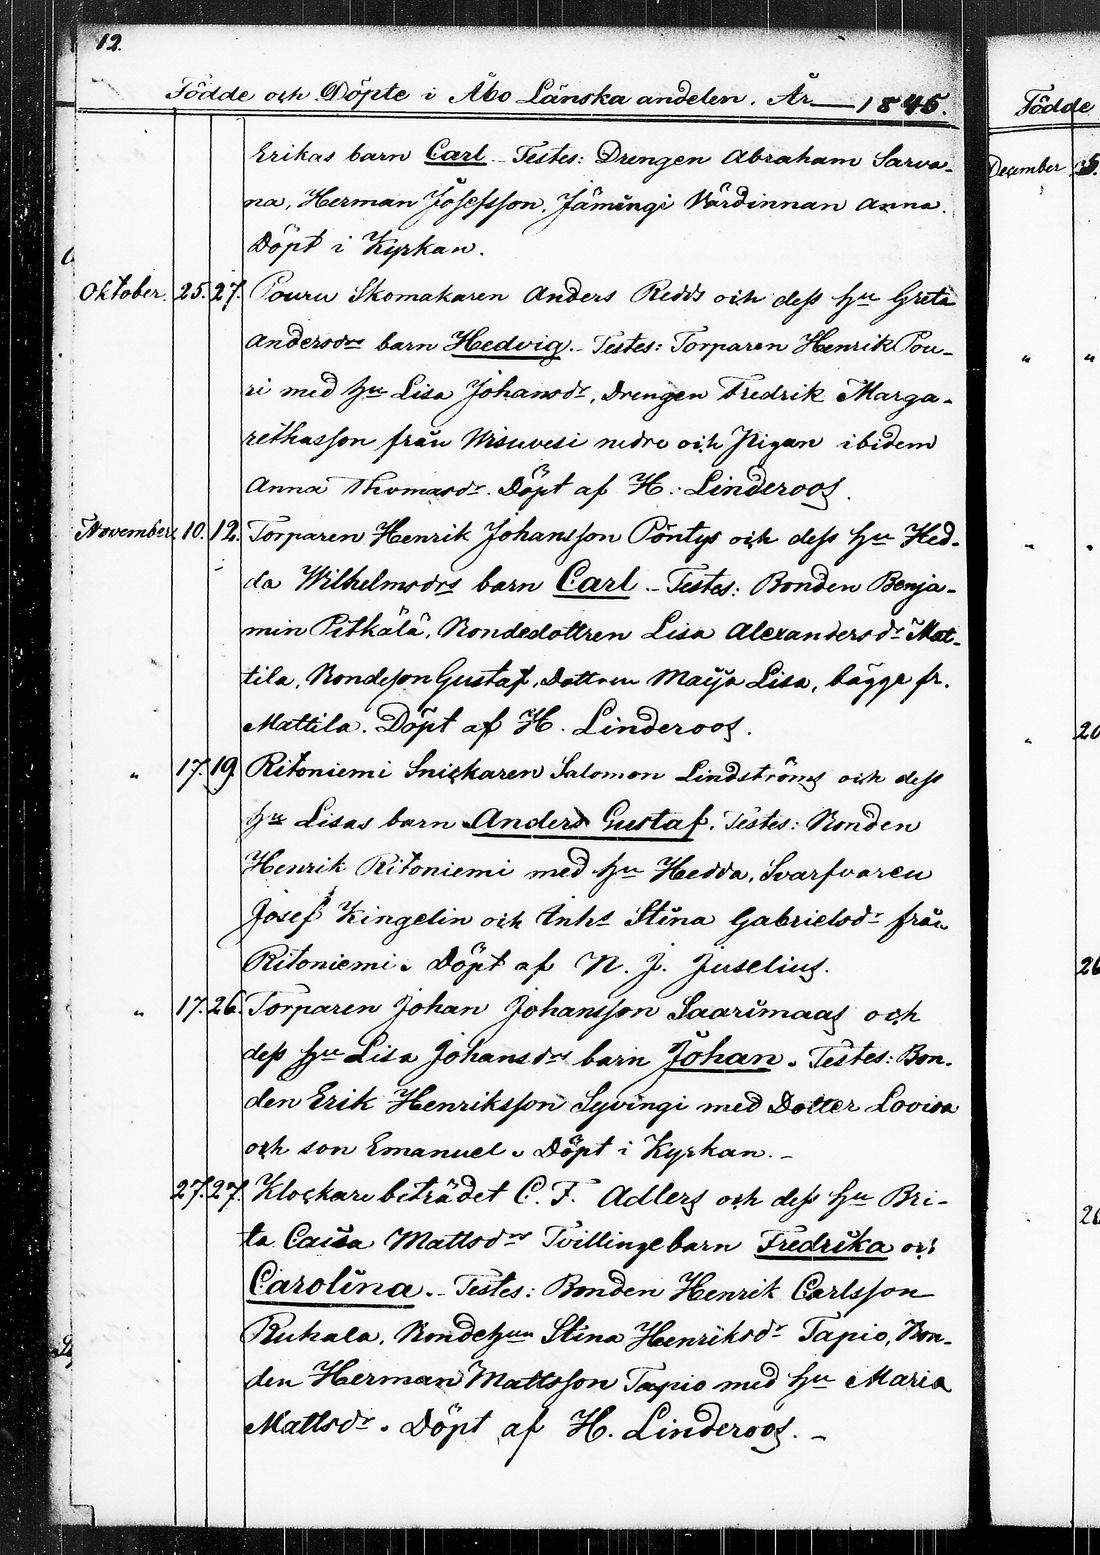 12.
Födde och Döpte i Åbo Länska andelen. År 1845.
Erikas barn Carl. Testes: Drengen Abraham Sarva-
na, Herman Josefsson, Jämingi Värdinnan Anna.
Döpt i Kyrkan.
Oktober. 25. 27. Pouru Skomakaren Anders Redds och dess hu Greta
Andersdrs barn Hedvig. Testes: Torparen Henrik Pou-
ri med hu Lisa Johansdr, Drengen Fredrik Marga-
rethasson från Wisuvesi nedre och Pigan ibidem
Anna Thomasdr. Döpt af H. Linderoos.
November. 10. 12. Torparen Henrik Johansson Pöntys och dess hu Hed-
da Wilhelmsdrs barn Carl. Testes: Bonden Benja-
min Pitkälä, Bondedottren Lisa Alexandersdr Mat-
tila, Bondeson Gustaf, Dottren Maija Lisa, bägge fr.
Mattila. Döpt af H. Linderoos.
" 17. 19. Ritoniemi Snickaren Salomon Lindströms och dess
hu Lisas barn Anders Gustaf. Testes: Bonden
Henrik Ritoniemi med hu Hedda, Svarfvaren
Josef Kingelin och Inhs Stina Gabrielsdr från
Ritoniemi. Döpt af N. J. Juselius.
" 17. 26. Torparen Johan Johansson Saarimaas och
dess hu Lisa Johansdrs barn Johan. Testes: Bon-
den Erik Henriksson Syvingi med Dotter Lovisa
och son Emanuel. Döpt i Kyrkan.
27. 27. Klockare beträdet C. F. Adlers och dess hu Bri-
ta Caisa Mattsdrs Tvillingebarn Fredrika och
Carolina. Testes: Bonden Henrik Carlsson
Ruhala, Bondehun Stina Henriksdr Tapio, Bon-
den Herman Mattsson Tapio med hu Maria
Mattsdr. Döpt af H. Linderoos.
Födde
December 25.
" "
" "
" 20
26
26